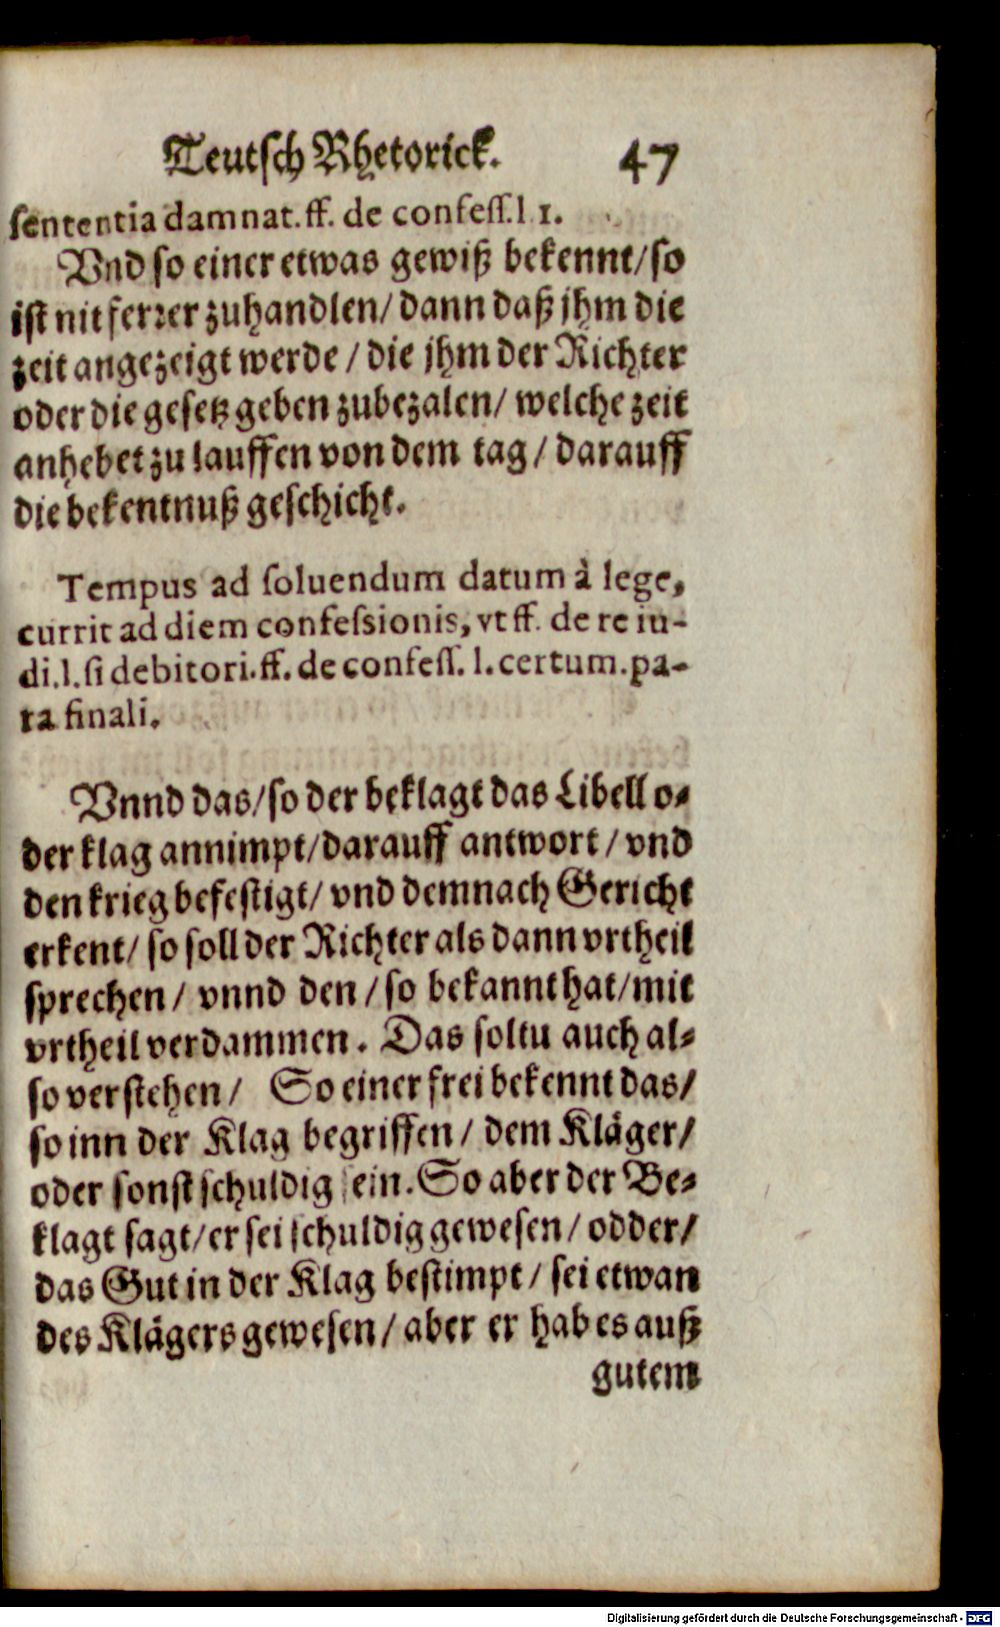 Teutsch Rhetorick. 47
sententia damnat. ff. de confess. l 1.
Vnd so einer etwas gewiß bekennt/ so
ist nit ferrer zuhandlen/ dann daß jhm die
zeit angezeigt werde / die jhm der Richter
oder die gesetz geben zubezalen/ welche zeit
anhebet zu lauffen von dem tag / darauff
die bekentnuß geschicht.
Tempus ad soluendum datum à lege,
currit ad diem confessionis, vt ff. de re iu-
di. l. si debitori. ff. de confess. l. certum. pa-
ra finali.
Vnnd das/ so der beklagt das Libell o-
der klag annimpt/ darauff antwort / vnd
den krieg befestigt/ vnd demnach Gericht
erkent/ so soll der Richter als dann vrtheil
sprechen / vnnd den / so bekannt hat/ mit
vrtheil verdammen. Das soltu auch al-
so verstehen / So einer frei bekennt das/
so inn der Klag begriffen / dem Kläger/
oder sonst schuldig sein. So aber der Be-
klagt sagt/ er sei schuldig gewesen / odder/
das Gut in der Klag bestimpt / sei etwan
des Klägers gewesen / aber er hab es auß
gutem
Digitalisierung gefördert durch die Deutsche Forschungsgemeinschaft - DFG